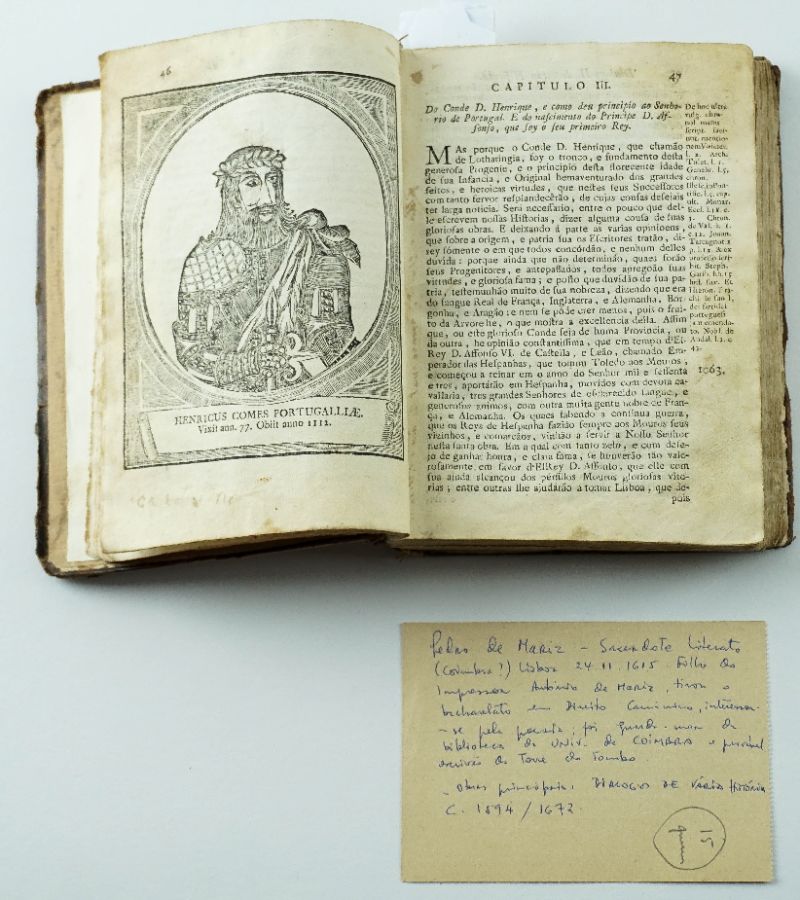 46
HENRICUS COMES PORTUGALLIÆ.
Vixit ann. 77. Obiit anno 1112.
47
CAPITULO III.
Do Conde D. Henrique, e como deu principio ao Senho-
rio de Portugal. E do nascimento do Principe D. Af-
fonso, que foy o seu primeiro Rey.
MAs porque o Conde D. Henrique, que chamão
de Lotharingia, foy o tronco, e fundamento desta
generosa Progenie, e o principio desta florecente idade
de sua Infancia, e Original bemaventurado das grandes
feitos, e heroicas virtudes, que nestes seus Successores
com tanto fervor resplandecêrão, de cujas cousas desejais
ter larga noticia. Será necessario, entre o pouco que del-
le escrevem nossas Historias, dizer alguma cousa de suas
gloriosas obras. E deixando á parte as varias opinioens,
que sobre a origem, e patria sua os Escritores tratão, di-
rey sómente o em que todos concórdão, e nenhum delles
duvida: porque ainda que não determinão, quaes forão
seus Progenitores, e antepassados, todos apregoão suas
virtudes, e gloriosa fama; e posto que duvidão de sua pa-
tria, testemunhão muito de sua nobreza, dizendo que era
do sangue Real de França, Inglaterra, e Alemanha, Bor-
gonha, e Aragão: e nem se póde crer menos, pois o frui-
to da Arvore he, o que mostra a excellencia della. Assim
que, ou este glorioso Conde seja de huma Provincia, ou
da outra, he opinião constantissima, que em tempo d'El-
Rey D. Affonso VI. de Castella, e Leão, chamado Em-
perador das Hespanhas, que tomou Toledo aos Mouros,
e começou a reinar em o anno do Senhor mil e sessenta
e tres, aportárão em Hespanha, movidos com devota ca-
vallaria, tres grandes Senhores de esclarecido sangue, e
generosos animos, com outra muita gente nobre de Fran-
ça, e Alemanha. Os quaes sabendo a continua guerra,
que os Reys de Hespanha fazião sempre aos Mouros seus
vizinhos, e comarcãos, vinhão a servir a Nosso Senhor
nesta santa obra. Em a qual com tanto zelo, e com dese-
jo de ganhar honra, e clara fama, se houverão tão vale-
rosamente em favor d'ElRey D. Affonso, que elle com
sua ajuda alcançou dos perfidos Mouros gloriosas vito-
rias; entre outras lhe ajudárão a tomar Lisboa, que de-
pois
1063.
Pedro de Mariz – Sacerdote Literato
(Coimbra?) Lisboa 24.11.1615. Filho do
Impressor António de Mariz, tirou o
bacharelato em Direito Canónico, interessou-
-se pela poesia; foi guarda-mor da
biblioteca da UNIV. de COIMBRA e
escrivão da Torre do Tombo.
– Obras principais: DIÁLOGOS DE VÁRIA HISTÓRIA
C. 1594 / 1672.